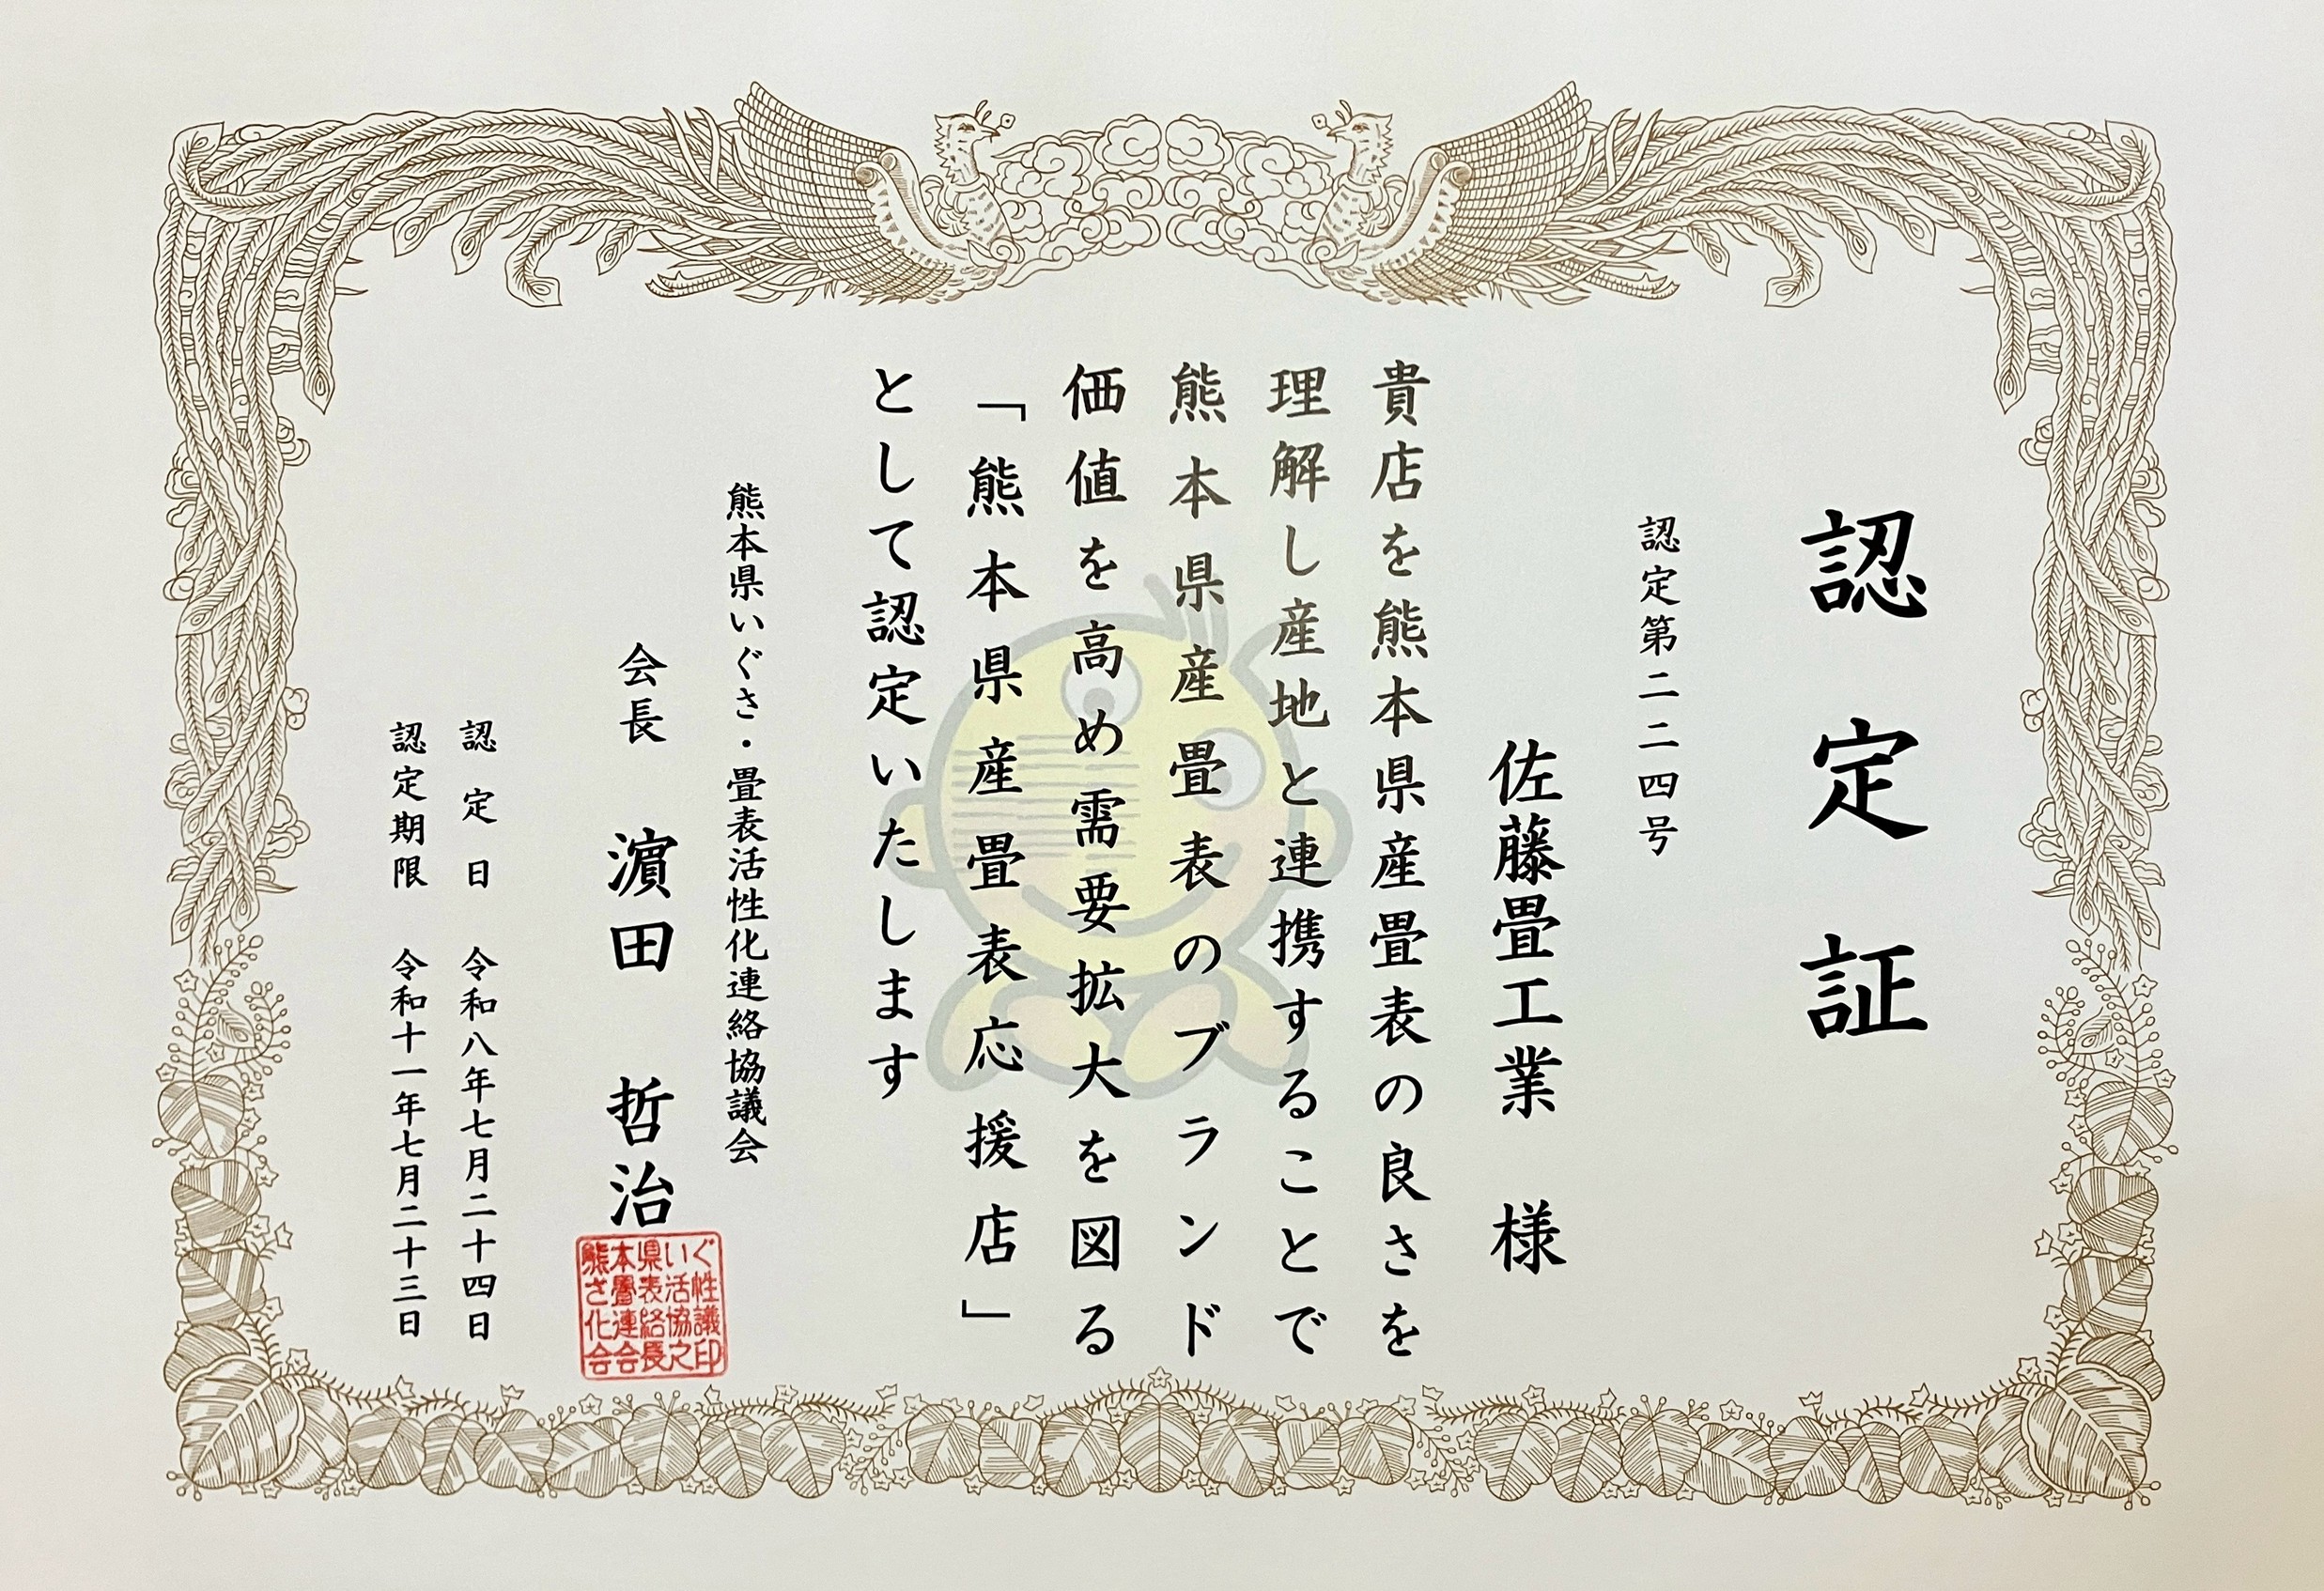 認定証
認定第二二四号
佐藤畳工業　様
貴店を熊本県産畳表の良さを
理解し産地と連携することで
熊本県産畳表のブランド
価値を高め需要拡大を図る
「熊本県産畳表応援店」
として認定いたします
熊本県いぐさ・畳表活性化連絡協議会
会長　濵田　哲治
認定日　令和八年七月二十四日
認定期限　令和十一年七月二十三日
熊本県いぐ
さ畳表活性
化連絡協議
会会長之印